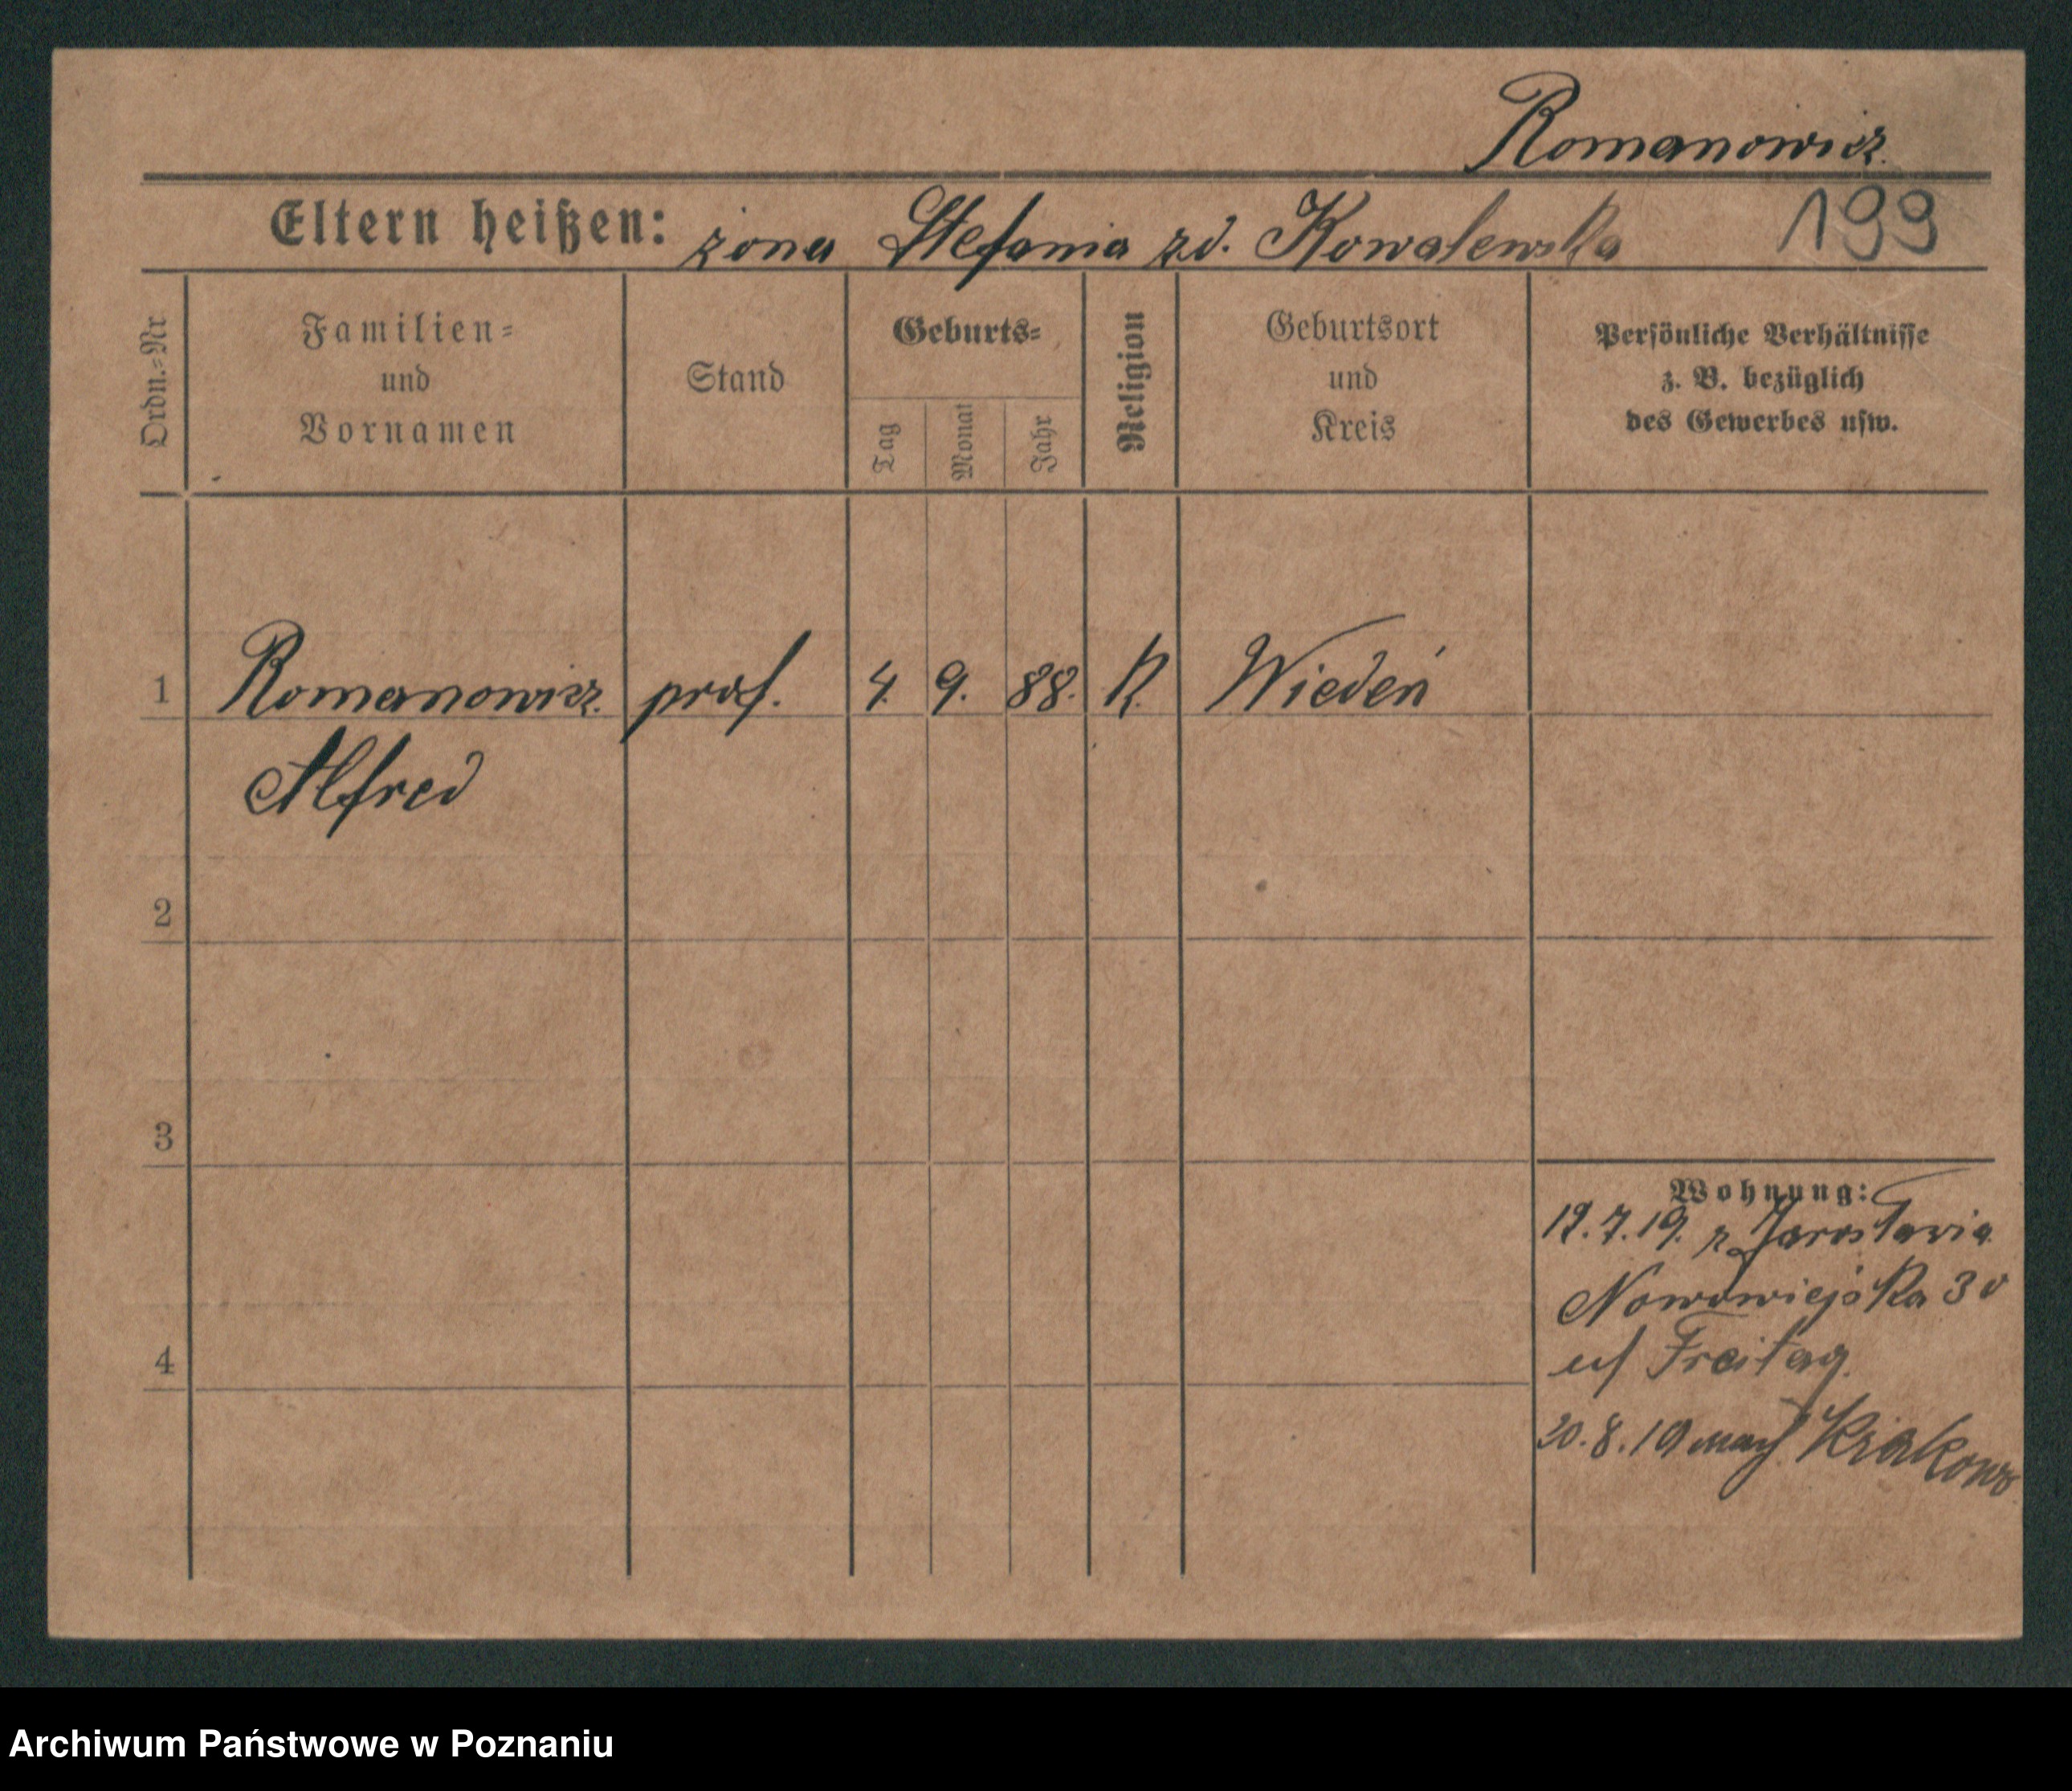 Romanowicz
Eltern heißen: żona Stefania zd. Kowalewska 199
Ordn.=Nr
Familien=
und
Vornamen
Stand
Geburts=
Tag
Monat
Jahr
Religion
Geburtsort
und
Kreis
Persönliche Verhältnisse
z. B. bezüglich
des Gewerbes usw.
1 Romanowicz prof. 4. 9. 88. K. Wiedeń
Alfred
2
3
Wohnung:
19.7.19. z Jarosławia
Nowowiejska 3
u/ Freitag
4
20.8.19 nach Krakow
Archiwum Państwowe w Poznaniu